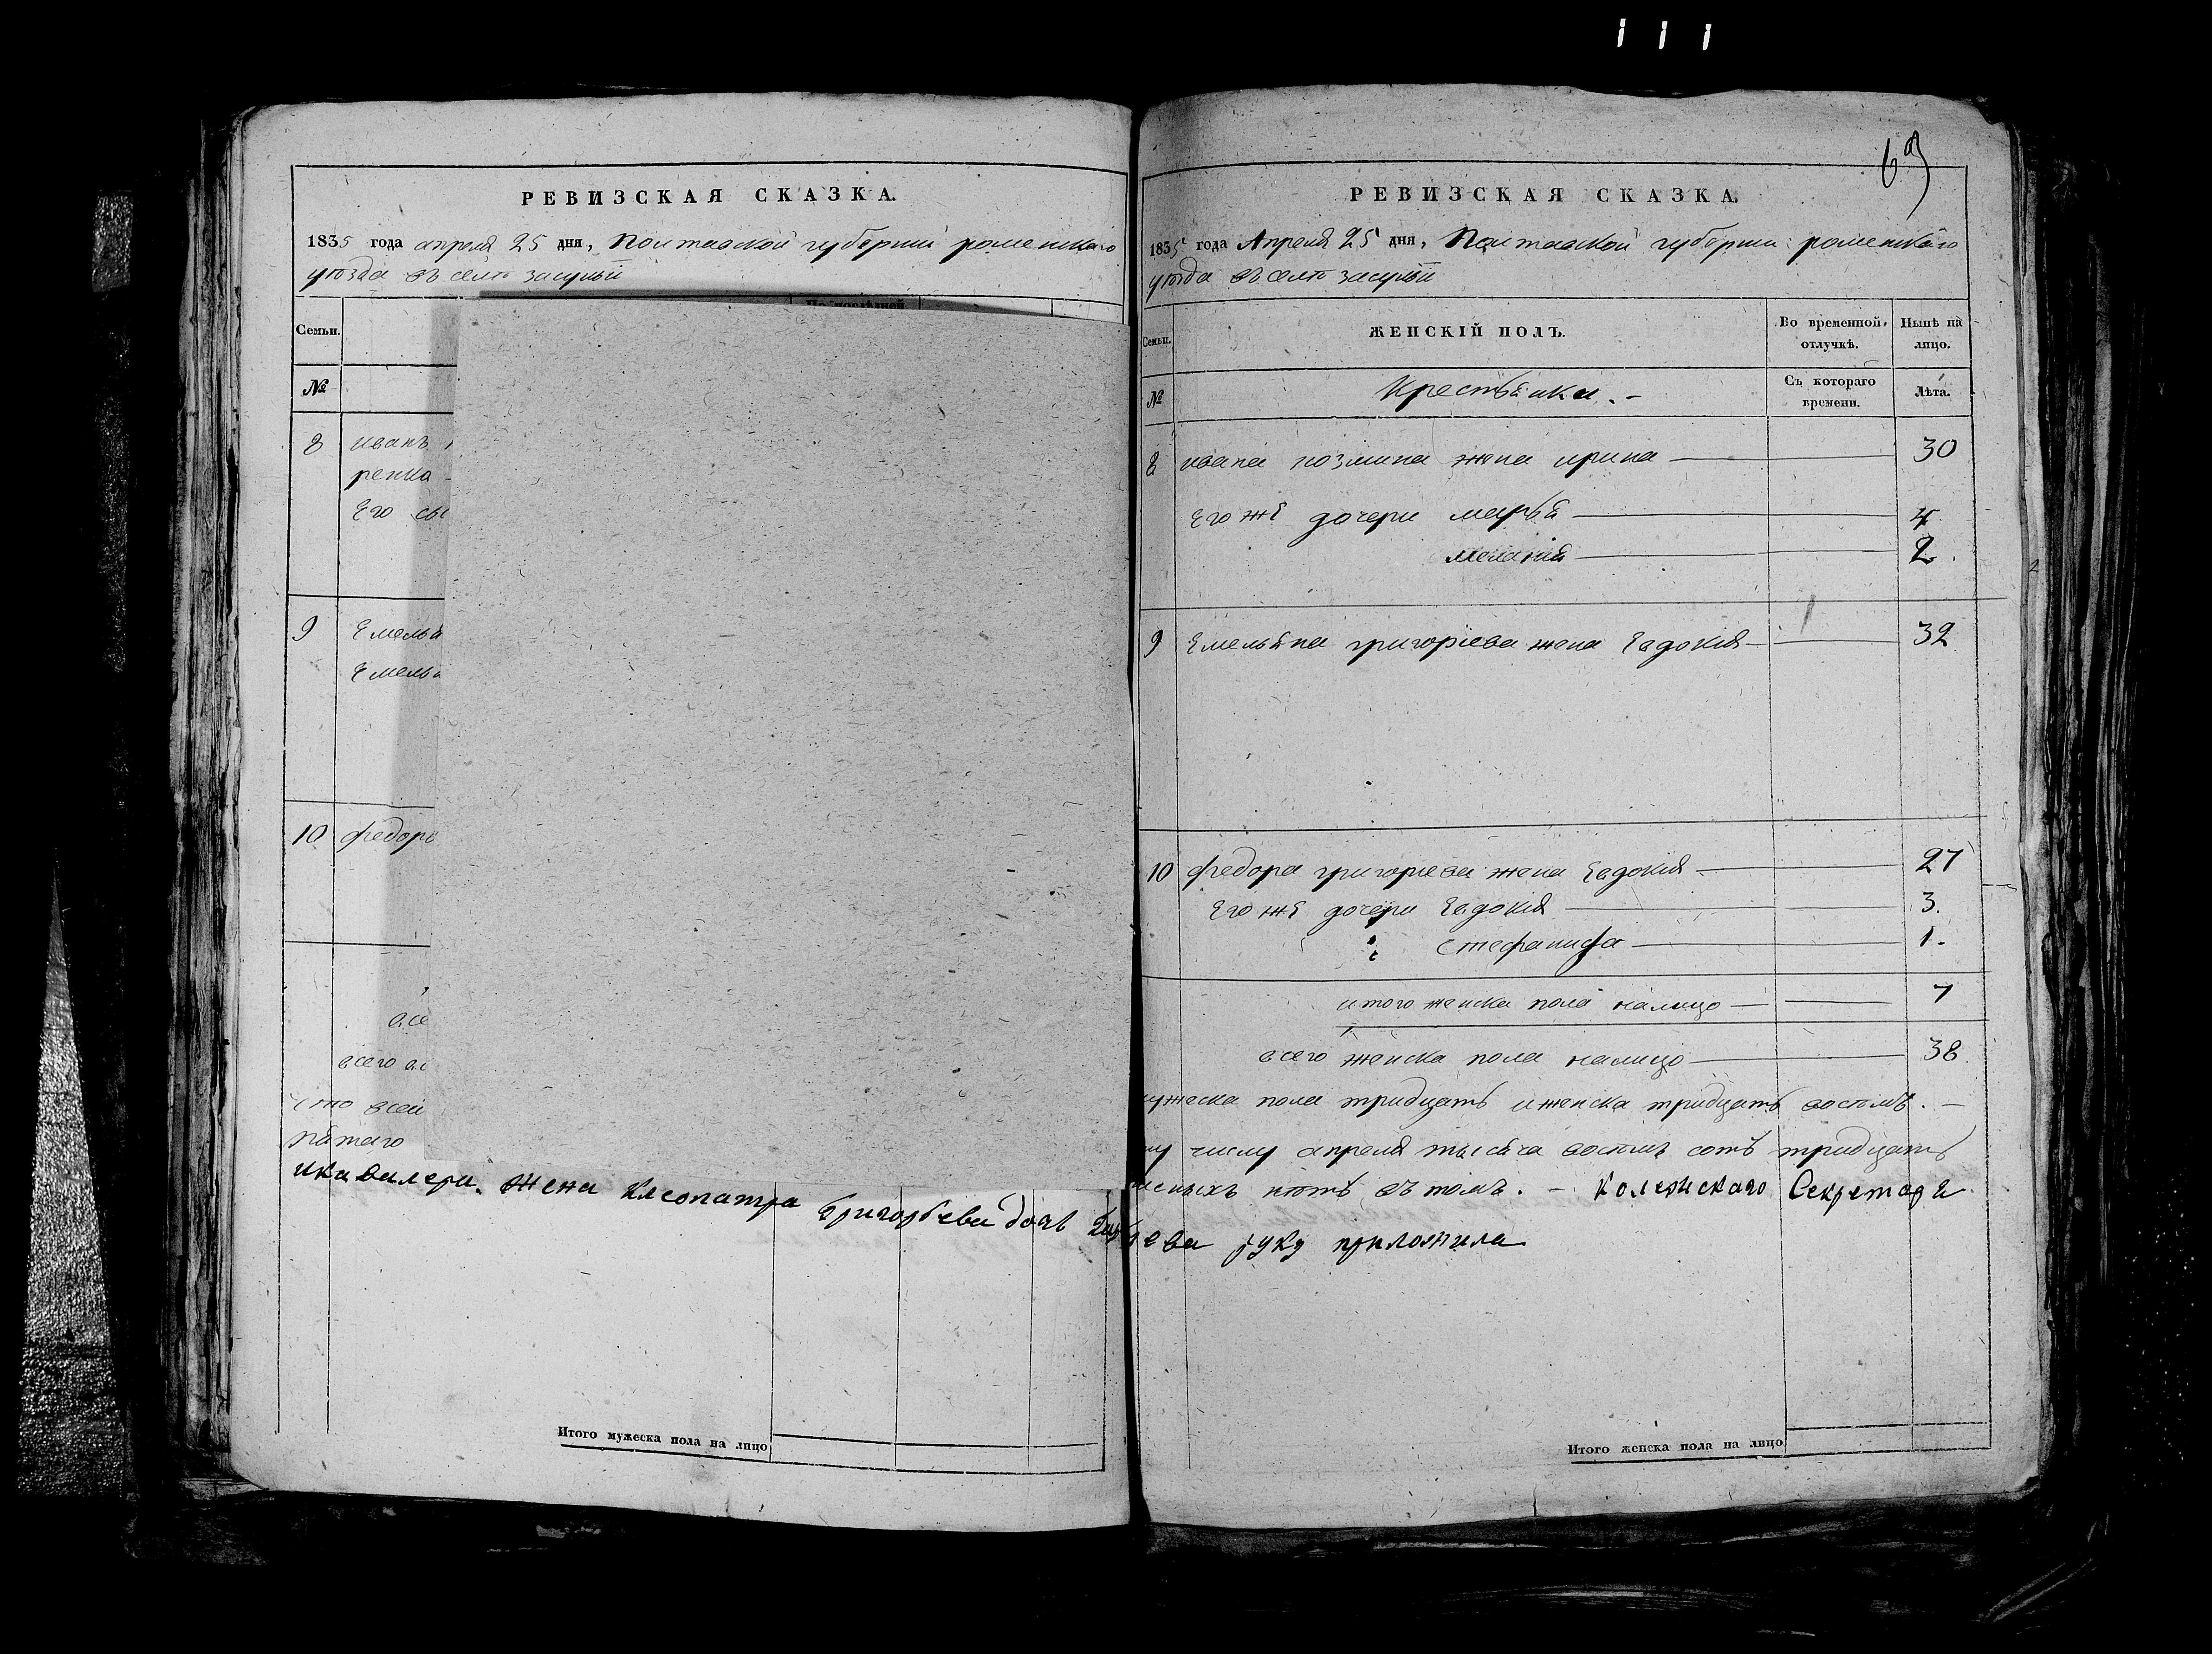 РЕВИЗСКАЯ СКАЗКА.
1835 года апреля 25 дня, Полтавской губернии роменскаго
уѣзда въ селѣ засульи
Семьи.
№
8 иванъ
ренко
Его сы
9 Емелья
Емелья
10 федоръ
всего
что всей
пятаго
икавалера. жена Клеопатра Григорьева дочь
Итого мужеска пола на лицо
69
РЕВИЗСКАЯ СКАЗКА.
1835 года Апреля 25 дня, Полтавской губернии роменскаго
уѣзда въ селѣ засульи
Семьи. ЖЕНСКІЙ ПОЛЪ. Во временной отлучкѣ. Нынѣ на лицо.
№ Крестьянки. - Съ котораго времени. Лѣта.
8 ивана козмина жена ирина 30
Его же дочери марья 4
меланія 2.
9 Емельяна григориева жена Евдокия 32
10 федора григориева жена Евдокия 27
Его же дочери Евдокия 3.
Стефанида 1.
итого женска пола налицо 7
всего женска пола налицо 38
мужеска пола тридцать иженска тридцать восьмъ. -
му числу апреля тысяча восьмъ сотъ тридцать
нѣтъ въ томъ. - Колежскаго Секретаря
ева руку приложила
Итого женска пола на лицо